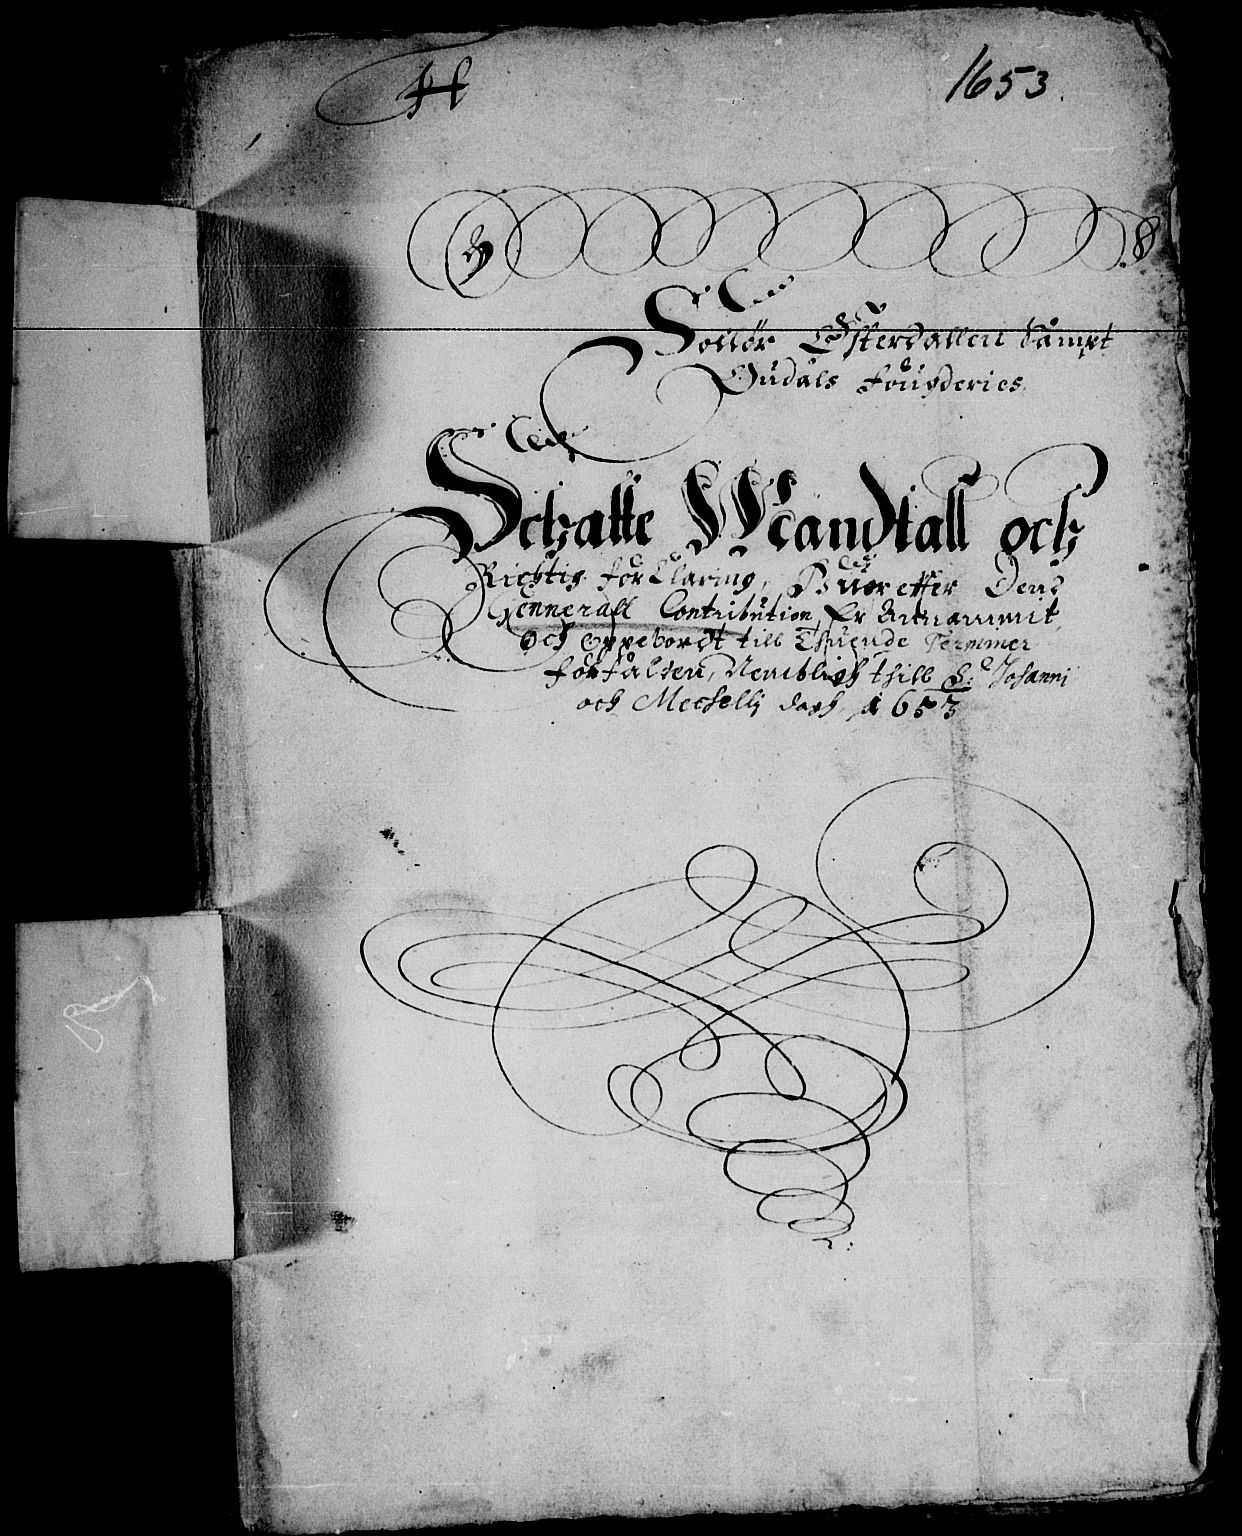 H
1653.
Soelør Østerdallen Sampt
Oudals fougderies
Schatte Mandtall och
Richtig forklaring, Huor effter Dend
Gennerall Contribution, Er Annammit
och oppebordt till Thuende Termmer
forfalden, Nembligh thill S: Johanni
och Mechelij dagh 1653